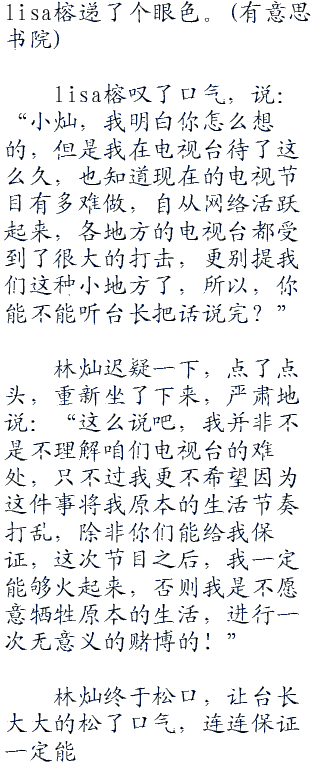 lisa榕递了个眼色。(有意思
书院)
lisa榕叹了口气，说：
“小灿，我明白你怎么想
的，但是我在电视台待了这
么久，也知道现在的电视节
目有多难做，自从网络活跃
起来，各地方的电视台都受
到了很大的打击，更别提我
们这种小地方了，所以，你
能不能听台长把话说完？”
林灿迟疑一下，点了点
头，重新坐了下来，严肃地
说：“这么说吧，我并非不
是不理解咱们电视台的难
处，只不过我更不希望因为
这件事将我原本的生活节奏
打乱，除非你们能给我保
证，这次节目之后，我一定
能够火起来，否则我是不愿
意牺牲原本的生活，进行一
次无意义的赌博的！”
林灿终于松口，让台长
大大的松了口气，连连保证
一定能